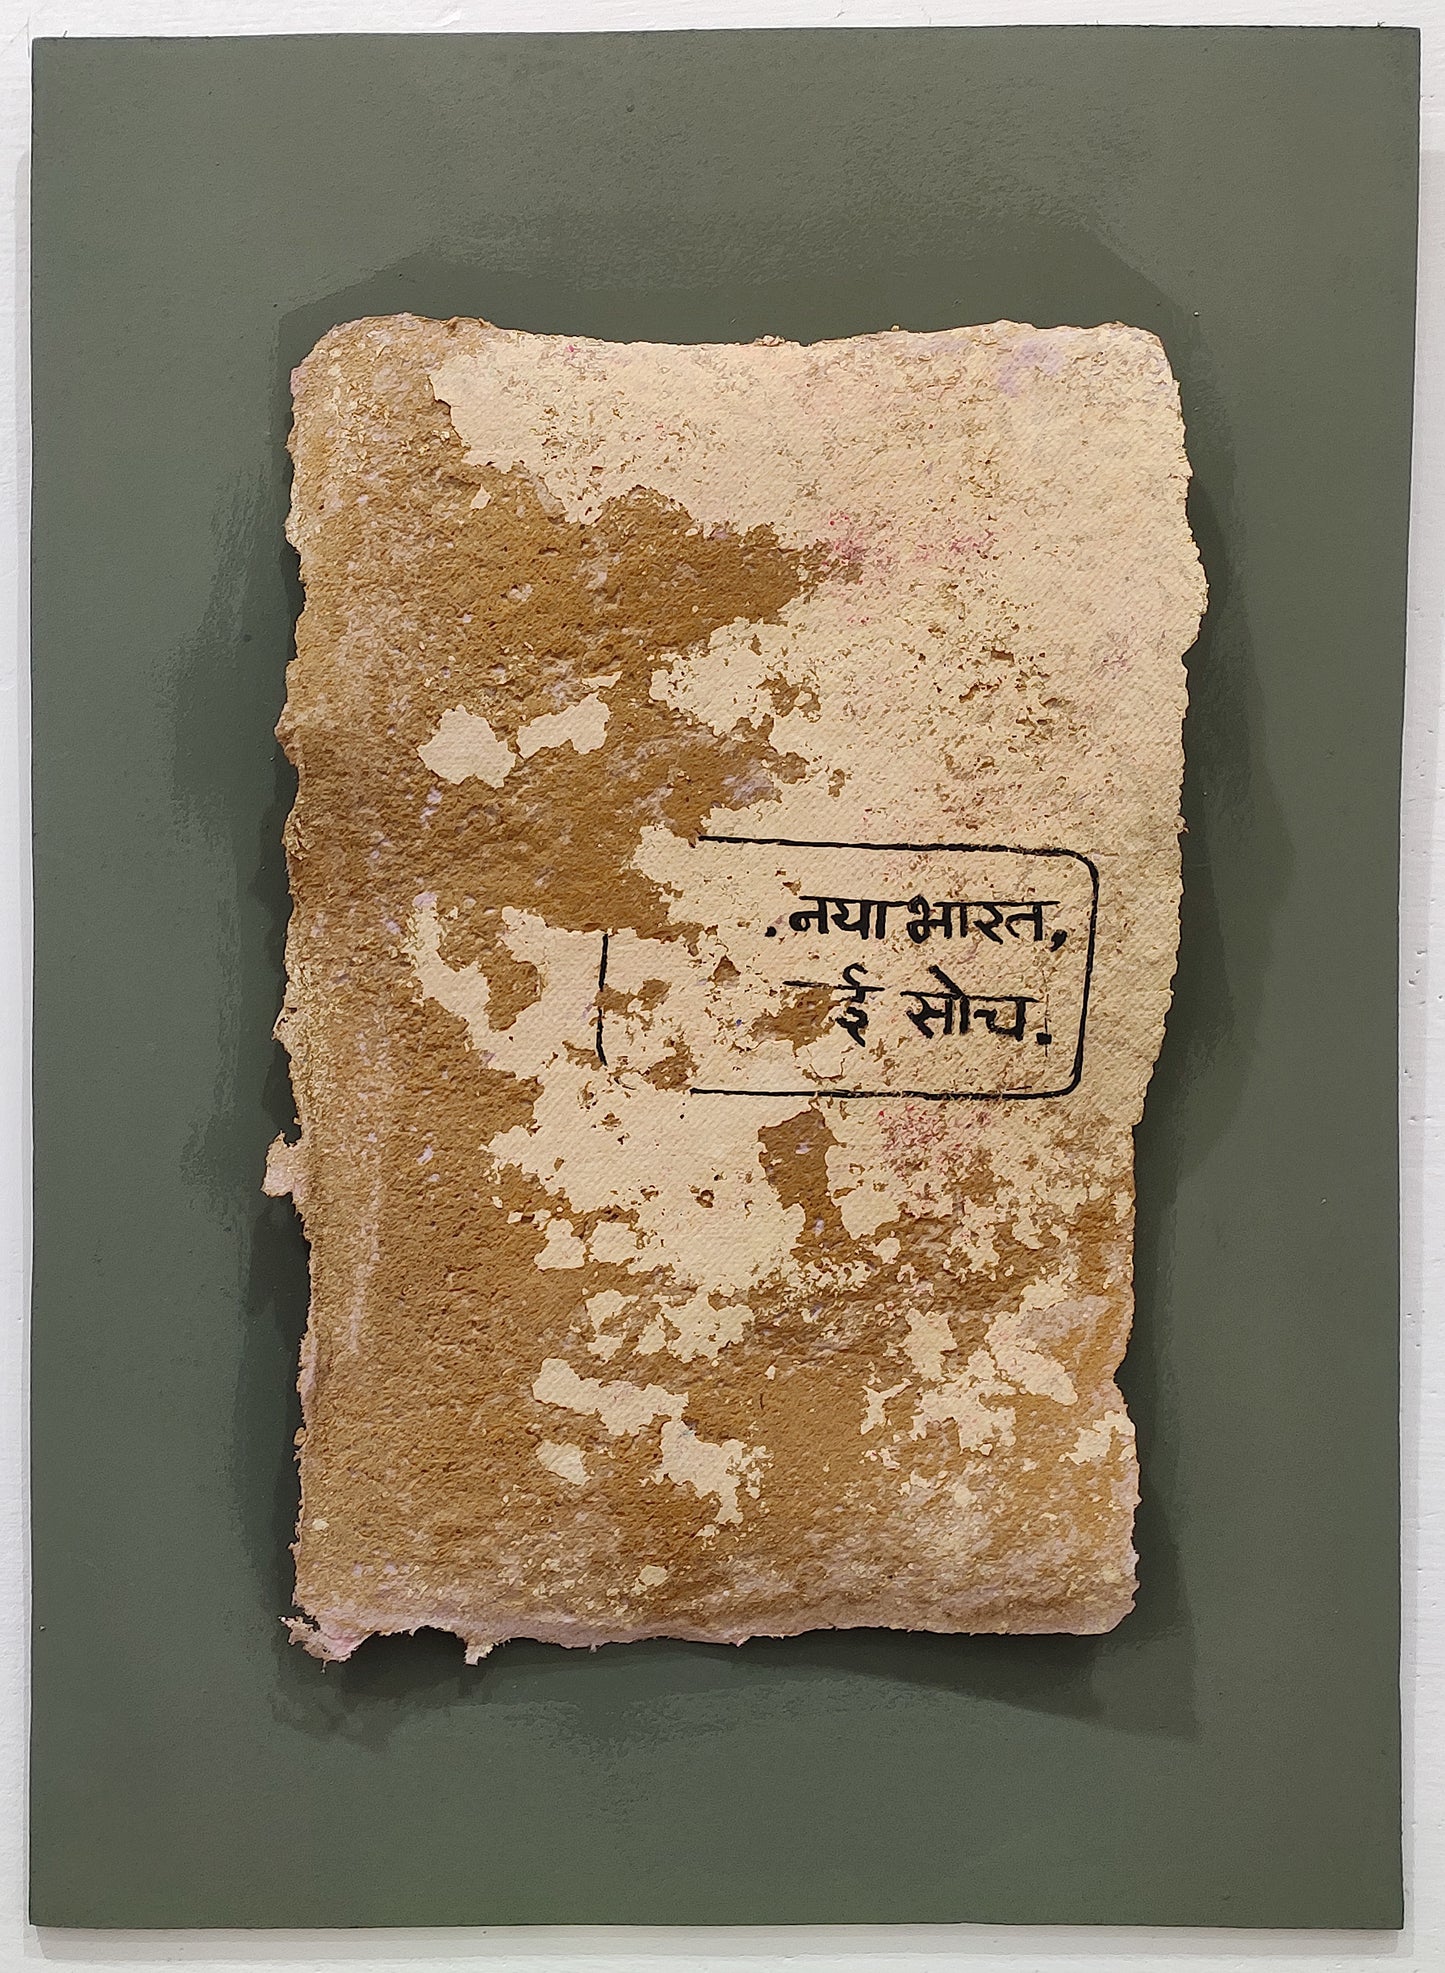 .नया भारत,
ई सोच.